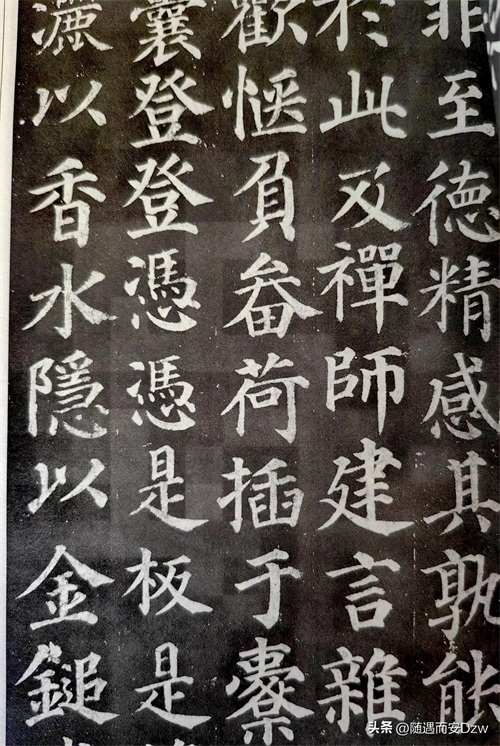 非至德精感其孰能
於此及禪師建言雜
歡愜負畚荷插于橐
囊登登憑憑是板是
灑以香水隱以金鎚
头条 @随遇而安Dzw